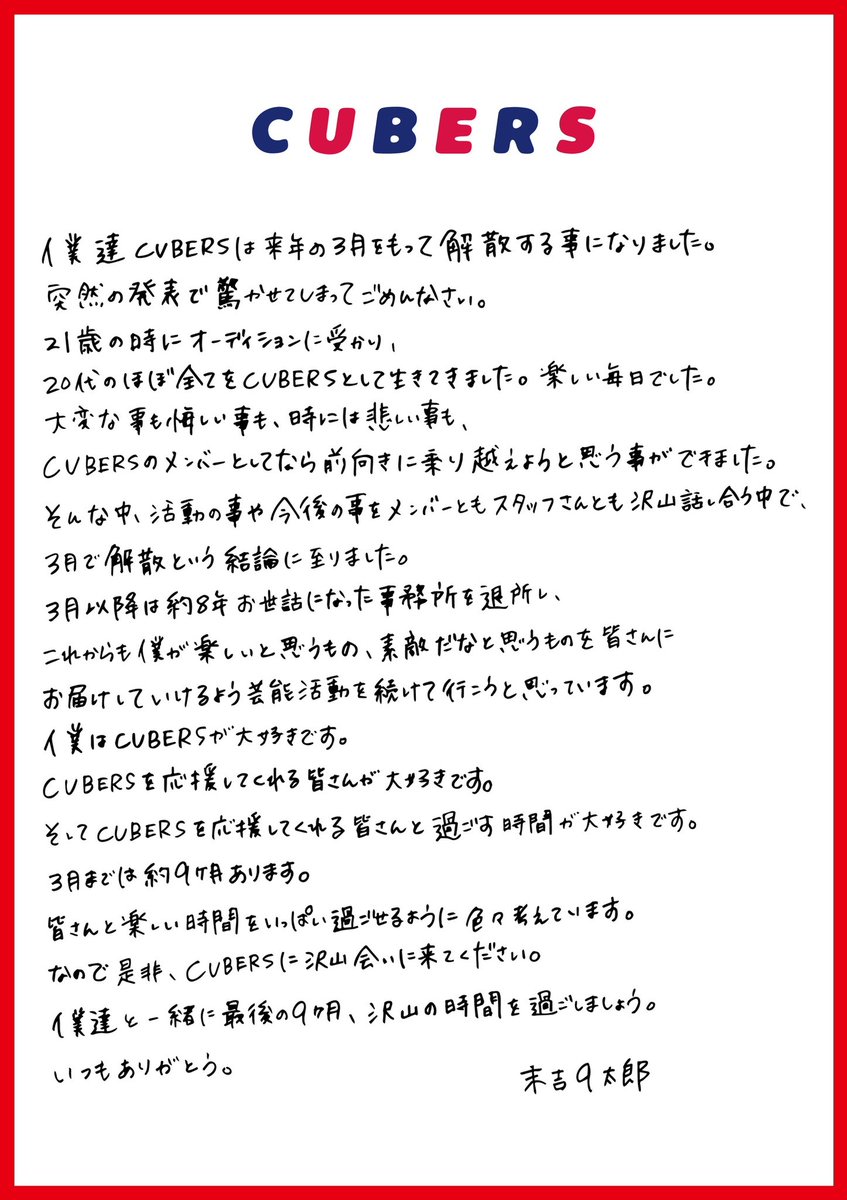 CUBERS
僕達CUBERSは来年の3月をもって解散する事になりました。
突然の発表で驚かせてしまってごめんなさい。
21歳の時にオーディションに受かり、
20代のほぼ全てをCUBERSとして生きてきました。楽しい毎日でした。
大変な事も悔しい事も、時には悲しい事も、
CUBERSのメンバーとしてなら前向きに乗り越えようと思う事ができました。
そんな中、活動の事や今後の事をメンバーともスタッフさんとも沢山話し合う中で、
3月で解散という結論に至りました。
3月以降は約8年お世話になった事務所を退所し、
これからも僕が楽しいと思うもの、素敵だなと思うものを皆さんに
お届けしていけるよう芸能活動を続けて行こうと思っています。
僕はCUBERSが大好きです。
CUBERSを応援してくれる皆さんが大好きです。
そしてCUBERSを応援してくれる皆さんと過ごす時間が大好きです。
3月までは約9ヶ月あります。
皆さんと楽しい時間をいっぱい過ごせるように色々考えています。
なので是非、CUBERSに沢山会いに来てください。
僕達と一緒に最後の9ヶ月、沢山の時間を過ごしましょう。
いつもありがとう。
末吉9太郎